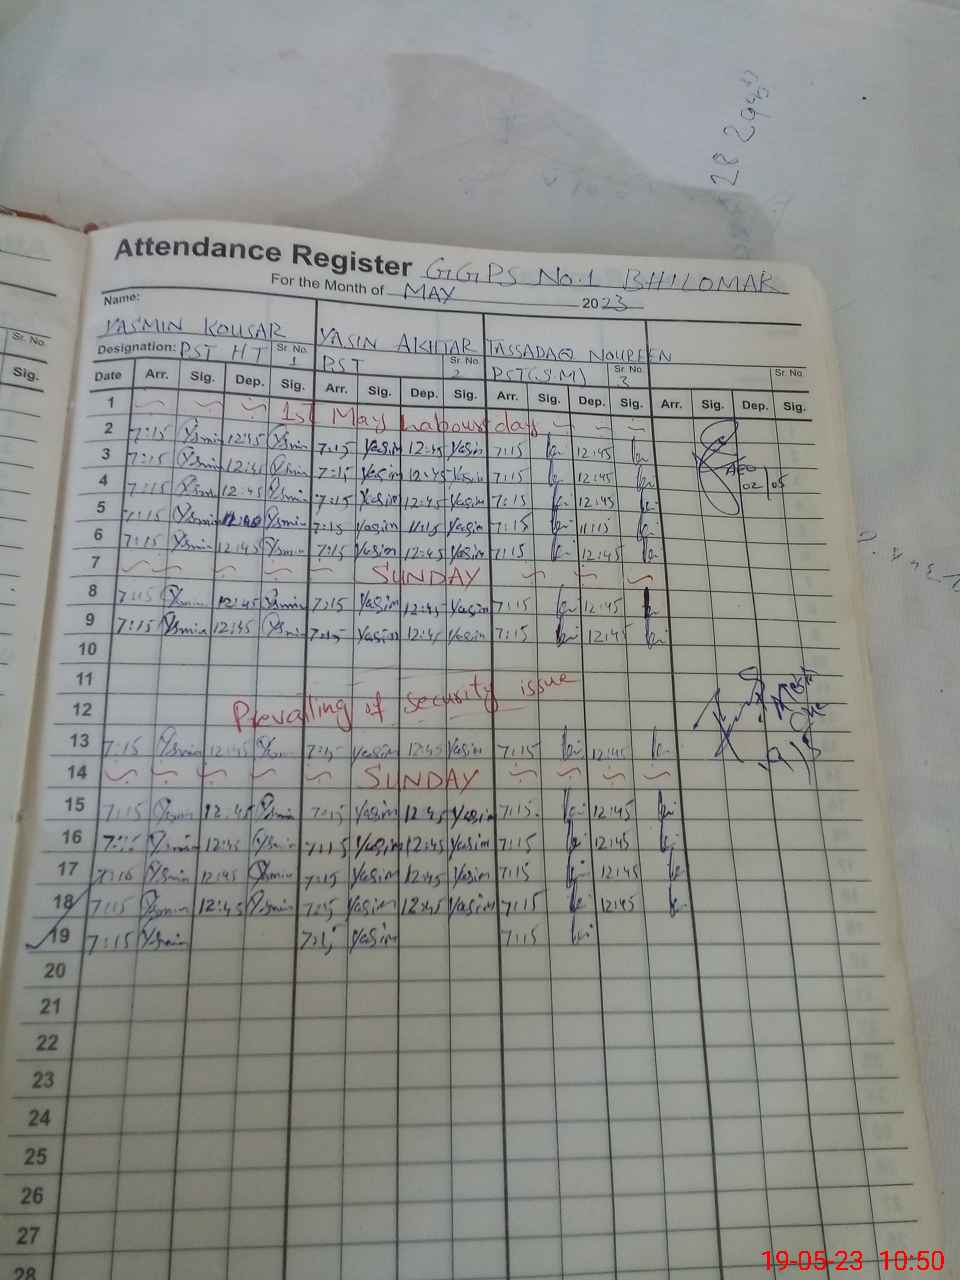 28 2945
Attendance Register GGPS No.1 BHILOMAR
For the Month of MAY 2023
Name:
YASMIN KOUSAR YASIN AKHTAR TASSADAQ NOUREEN
Designation: PST HT Sr. No. 1 PST Sr. No. 2 PST(S.M) Sr. No. 3 Sr. No.
Date Arr. Sig. Dep. Sig. Arr. Sig. Dep. Sig. Arr. Sig. Dep. Sig. Arr. Sig. Dep. Sig.
1 1st May Labour day
2 7:15 Ysmin 12:45 Ysmin 7:15 Yasin 12:45 Yasin 7:15 12:45
3 7:15 Ysmin 12:45 Ysmin 7:15 Yasin 12:45 Yasin 7:15 12:45 AEO
4 7:15 Ysmin 12:45 Ysmin 7:15 Yasin 12:45 Yasin 7:15 12:45 02/05
5 7:15 Ysmin Ysmin 7:15 Yasin 11:15 Yasin 7:15 11:15
6 7:15 Ysmin 12:45 Ysmin 7:15 Yasin 12:45 Yasin 7:15 12:45
7 SUNDAY
8 7:15 Ysmin 12:45 Ysmin 7:15 Yasin 12:45 Yasin 7:15 12:45
9 7:15 Ysmin 12:45 Ysmin 7:15 Yasin 12:45 Yasin 7:15 12:45
10
11
12 Prevailing of security issue
13 7:15 Ysmin 12:45 7:15 Yasin 12:45 Yasin 7:15 12:45
14 SUNDAY
15 7:15 Ysmin 12:45 Ysmin 7:15 Yasin 12:45 Yasin 7:15 12:45
16 7:15 Ysmin 12:45 Ysmin 7:15 Yasin 12:45 Yasin 7:15 12:45
17 Ysmin 12:45 Ysmin 7:15 Yasin 12:45 Yasin 7:15 12:45
18 7:15 Ysmin 12:45 Ysmin 7:15 Yasin 12:45 Yasin 7:15 12:45
19 7:15 Ysmin 7:15 Yasin 7:15
20
21
22
23
24
25
26
27
28
19-05-23 10:50